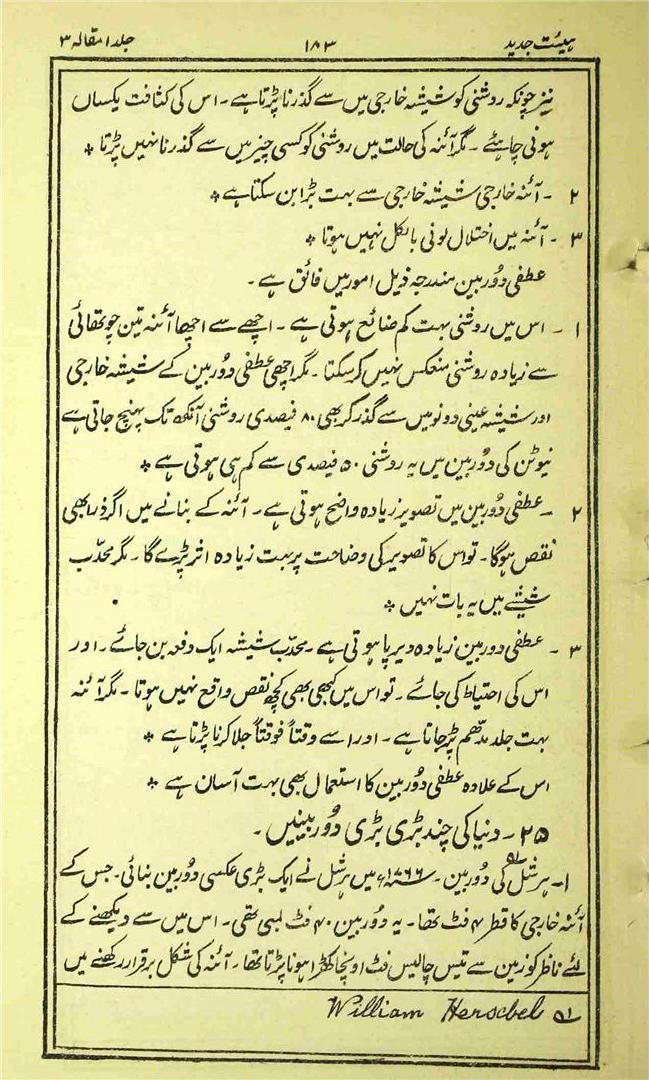 ہیئت جدید ۱۸۳ جلد ۱ مقالہ ۳
نیز چونکہ روشنی کو شیشہ خارجی میں سے گذرنا پڑتا ہے۔ اس کی کثافت یکساں
ہونی چاہئے۔ مگر آئنہ کی حالت میں روشنی کو کسی چیز میں سے گذرنا نہیں پڑتا *
۲ - آئنہ خارجی شیشہ خارجی سے بہت بڑا بن سکتا ہے *
۳ - آئنہ میں اختلال لونی بالکل نہیں ہوتا *
عطفی دُوربین مندرجہ ذیل امور میں فائق ہے۔
۱ - اس میں روشنی بہت کم ضائع ہوتی ہے۔ اچھے سے اچھا آئنہ تین چوتھائی
سے زیادہ روشنی منعکس نہیں کر سکتا۔ مگر اچھی عطفی دُوربین کے شیشہ خارجی
اور شیشہ عینی دونو میں سے گذر کر بھی ۸۰ فیصدی روشنی آنکھ تک پہنچ جاتی ہے
نیوٹن کی دُوربین میں یہ روشنی ۵۰ فیصدی سے کم ہی ہوتی ہے *
۲ - عطفی دُوربین میں تصویر زیادہ واضح ہوتی ہے۔ آئنہ کے بنانے میں اگر ذرا بھی
نقص ہوگا۔ تو اس کا تصویر کی وضاحت پر بہت زیادہ اثر پڑے گا۔ مگر محدّب
شیشے میں یہ بات نہیں *
۳ - عطفی دوربین زیادہ دیرپا ہوتی ہے۔ محدّب شیشہ ایک دفعہ بن جائے۔ اور
اس کی احتیاط کی جائے۔ تو اس میں کبھی بھی کچھ نقص واقع نہیں ہوتا۔ مگر آئنہ
بہت جلد مدّھم پڑ جاتا ہے۔ اور اسے وقتاً فوقتاً جلا کرنا پڑتا ہے *
اس کے علاوہ عطفی دُوربین کا استعمال بھی بہت آسان ہے *
۲۵ - دنیا کی چند بڑی بڑی دُوربینیں۔
۱- ہرشل ۱؎ کی دُوربین۔ ۱۷۶۶ء میں ہرشل نے ایک بڑی عکسی دُوربین بنائی۔ جس کے
آئنہ خارجی کا قطر ۴ فٹ تھا۔ یہ دُوربین ۴۰ فٹ لمبی تھی۔ اس میں سے دیکھنے کے
لئے ناظر کو زمین سے تیس چالیس فٹ اونچا کھڑا ہونا پڑتا تھا۔ آئنہ کی شکل برقرار رکھنے میں
۱؎ William Herschel